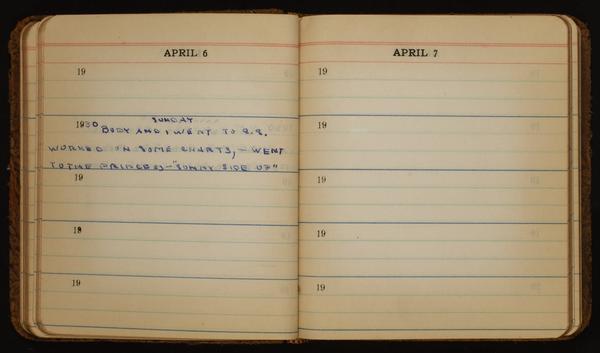 APRIL 6
19
1930 SUNDAY
BODY AND I WENT TO S.S.
WORKED ON SOME CHARTS, – WENT
TO THE PRINCESS – "SUNNY SIDE UP"
19
19
19
APRIL 7
19
19
19
19
19